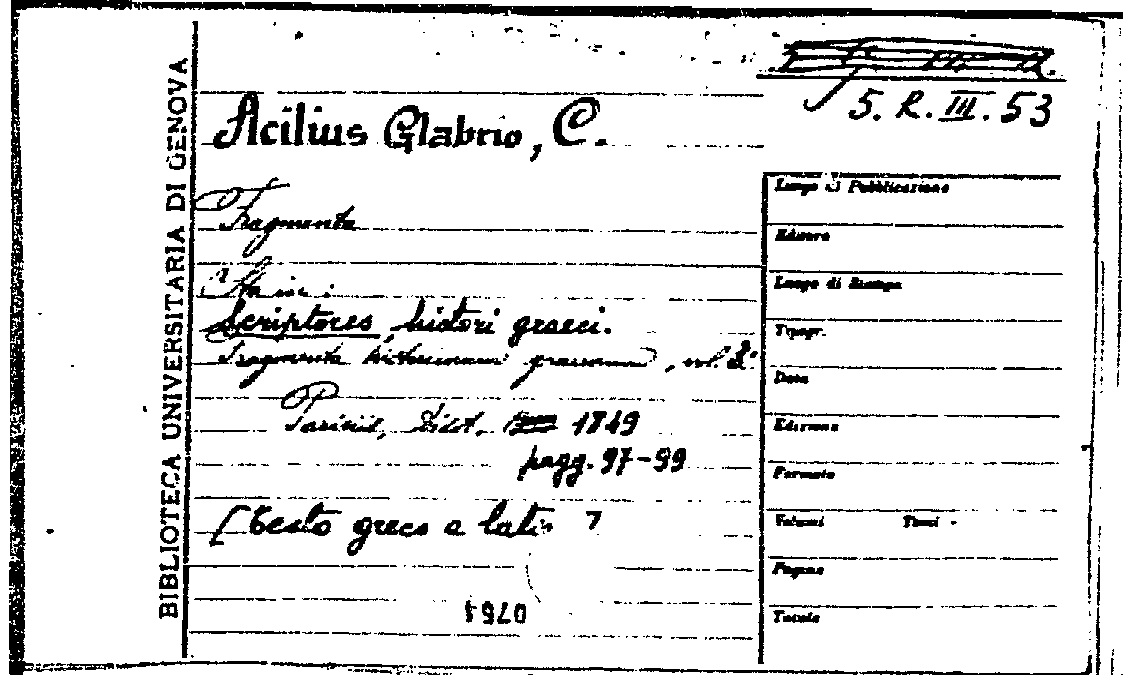 BIBLIOTECA UNIVERSITARIA DI GENOVA
5. R. III. 53
Acilius Glabrio, C.
Fragmenta
Sta in:
Scriptores histori graeci.
Fragmenta historicorum graecorum, vol. 3°
Parisiis, Didot, 1849
pagg. 97-99
[Testo greco e latino]
Luogo di Pubblicazione
Editore
Luogo di Stampa
Tipogr.
Data
Edizione
Formato
Volumi Tomi
Pagine
Tavole